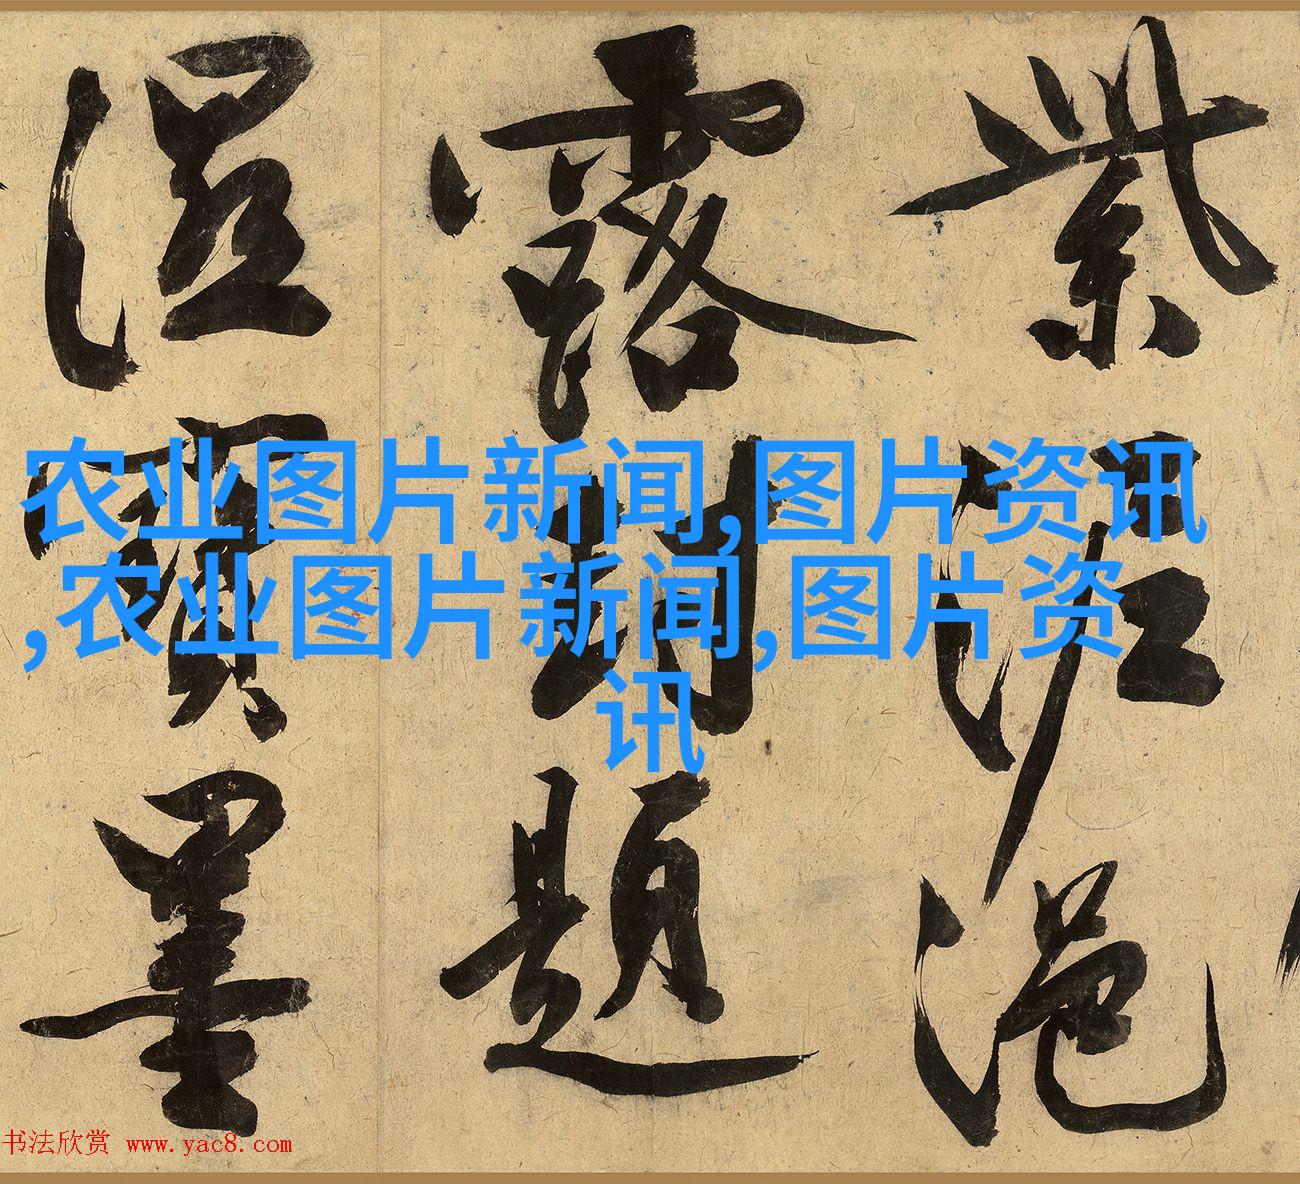 紫泥浥
露封題
濕寶墨
农业图片新闻,图片资讯
,农业图片新闻,图片资
讯
书法欣赏 www.yac8.com